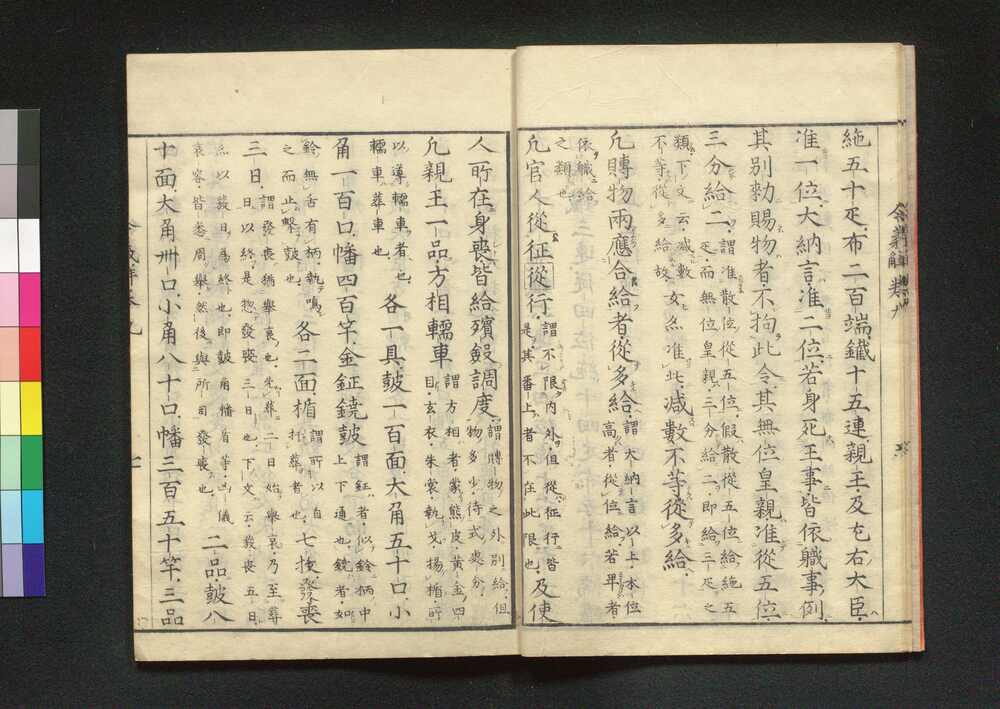 絁五十疋布二百端鐵十五連親王及左右大臣
准一位大納言准二位若身死王事皆依職事例
其別勅賜物者不拘此令其無位皇親准從五位
三分給二謂准散位從五位假散從五位給絁五
疋而無位皇親三分給二即給三疋之
類下文云減數
不等從多給故女亦准此減數不等從多給
凡賻物兩應合給者從多給謂大納言以上本位
高者從位給若卑者
依職給
之類也
凡官人從征從行謂不限内外但從征行皆
是其番上者不在此限也及使
人所在身喪皆給殯斂調度謂賻物之外別給但
物多少待式處分
凡親王一品方相轜車謂方相者蒙熊皮黄金四
目玄衣朱裳執戈揚楯所
以導轜車者也
轜車葬車也各一具鼓一百面大角五十口小
角一百口幡四百竿金鉦鐃鼓謂鉦者似鈴柄中
上下通也鐃者如
鈴無舌有柄執鳴
之而止擊鼓也各二面楯謂所以自
扞葬者也七枚發喪
三日謂發喪猶舉哀也先葬二日始舉哀乃至葬
日以終是惣發喪三日也下文云發喪五日
亦以葬日爲終也即鼓角幡盾等凶儀
哀容皆悉周舉然後與所司發喪也二品鼓八
十面大角卅口小角八十口幡三百五十竿三品